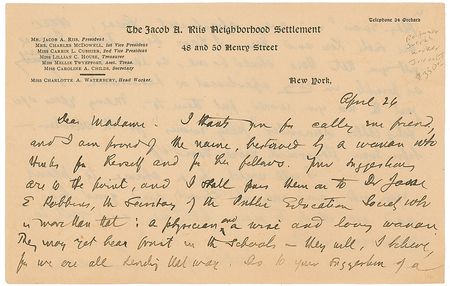 Telephone 24 Orchard
The Jacob A. Riis Neighborhood Settlement
48 and 50 Henry Street
Mr. Jacob A. Riis, President
Mrs. Charles McDowell, 1st Vice President
Miss Carrie L. Cushier, 2nd Vice President
Miss Lillian C. House, Treasurer
Miss Mellie Twyeffort, Asst. Treas.
Miss Caroline A. Childs, Secretary
Miss Charlotte A. Waterbury, Head Worker.
New York,
April 26
Dear Madame. I thank you for calling me friend,
and I am proud of the name, bestowed by a woman who
thinks for herself and for her fellows. Your suggestions
are to the point, and I shall pass them on to Dr Jane
E Robbins, the Secretary of the Public Education who
is more than that: a physician and a wise and loving woman.
They may yet bear fruit in the schools — they will, I believe,
for we are all tending that way. As to your suggestion of a